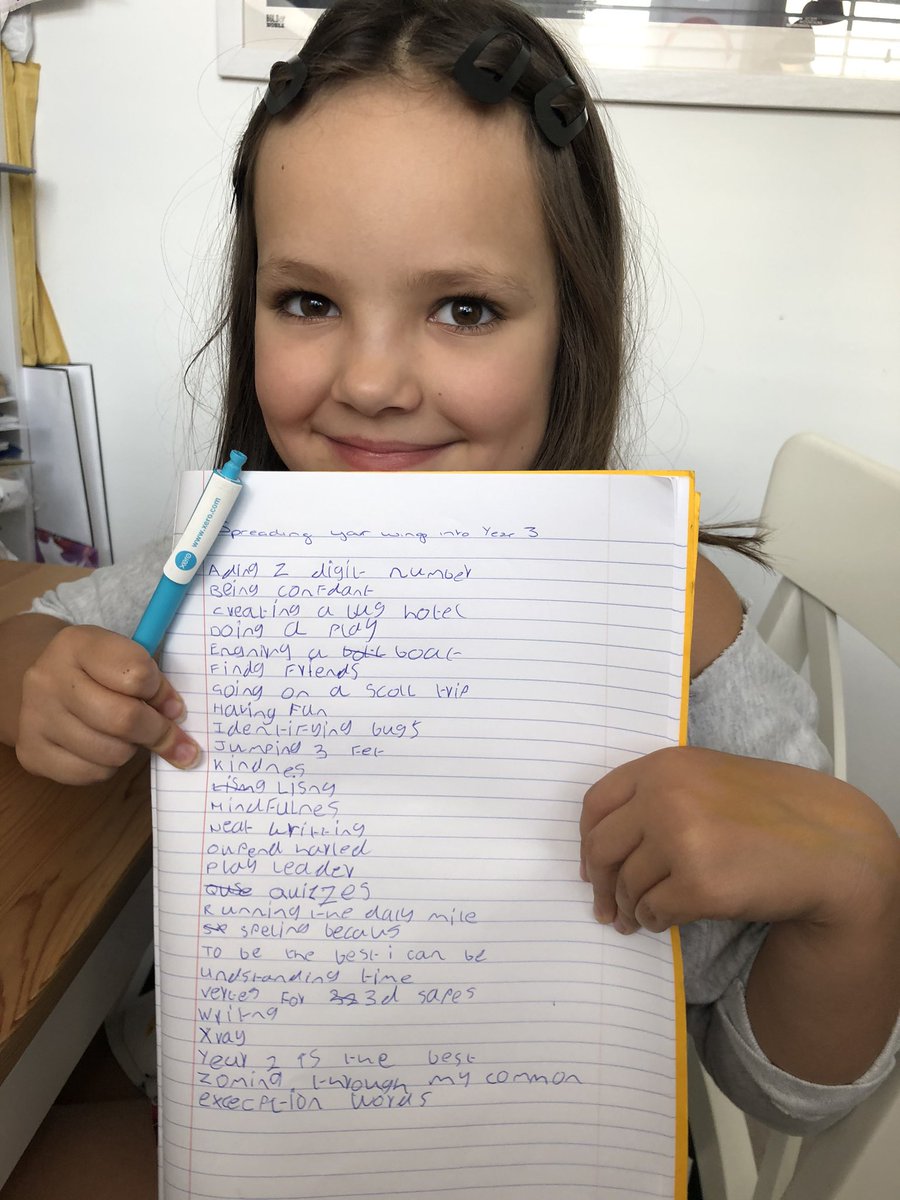 Spreading your wings into Year 3
Ading 2 digit number
Being confdant
creating a bug hotel
Doing a play
Engning a boat
Findg Friends
Going on a scoll trip
Having Fun
Identifying bugs
Jumping 3 Fet
Kindnes
Lisng Lisng
Mindfulnes
Neat writting
Play Leader
quizzes
Running the daly mile
speling becaus
To be the best i can be
undstanding time
vertes for 3d sapes
writng
Xray
Year 2 is the best
Zoming through my common
excecption words
xero www.xero.com